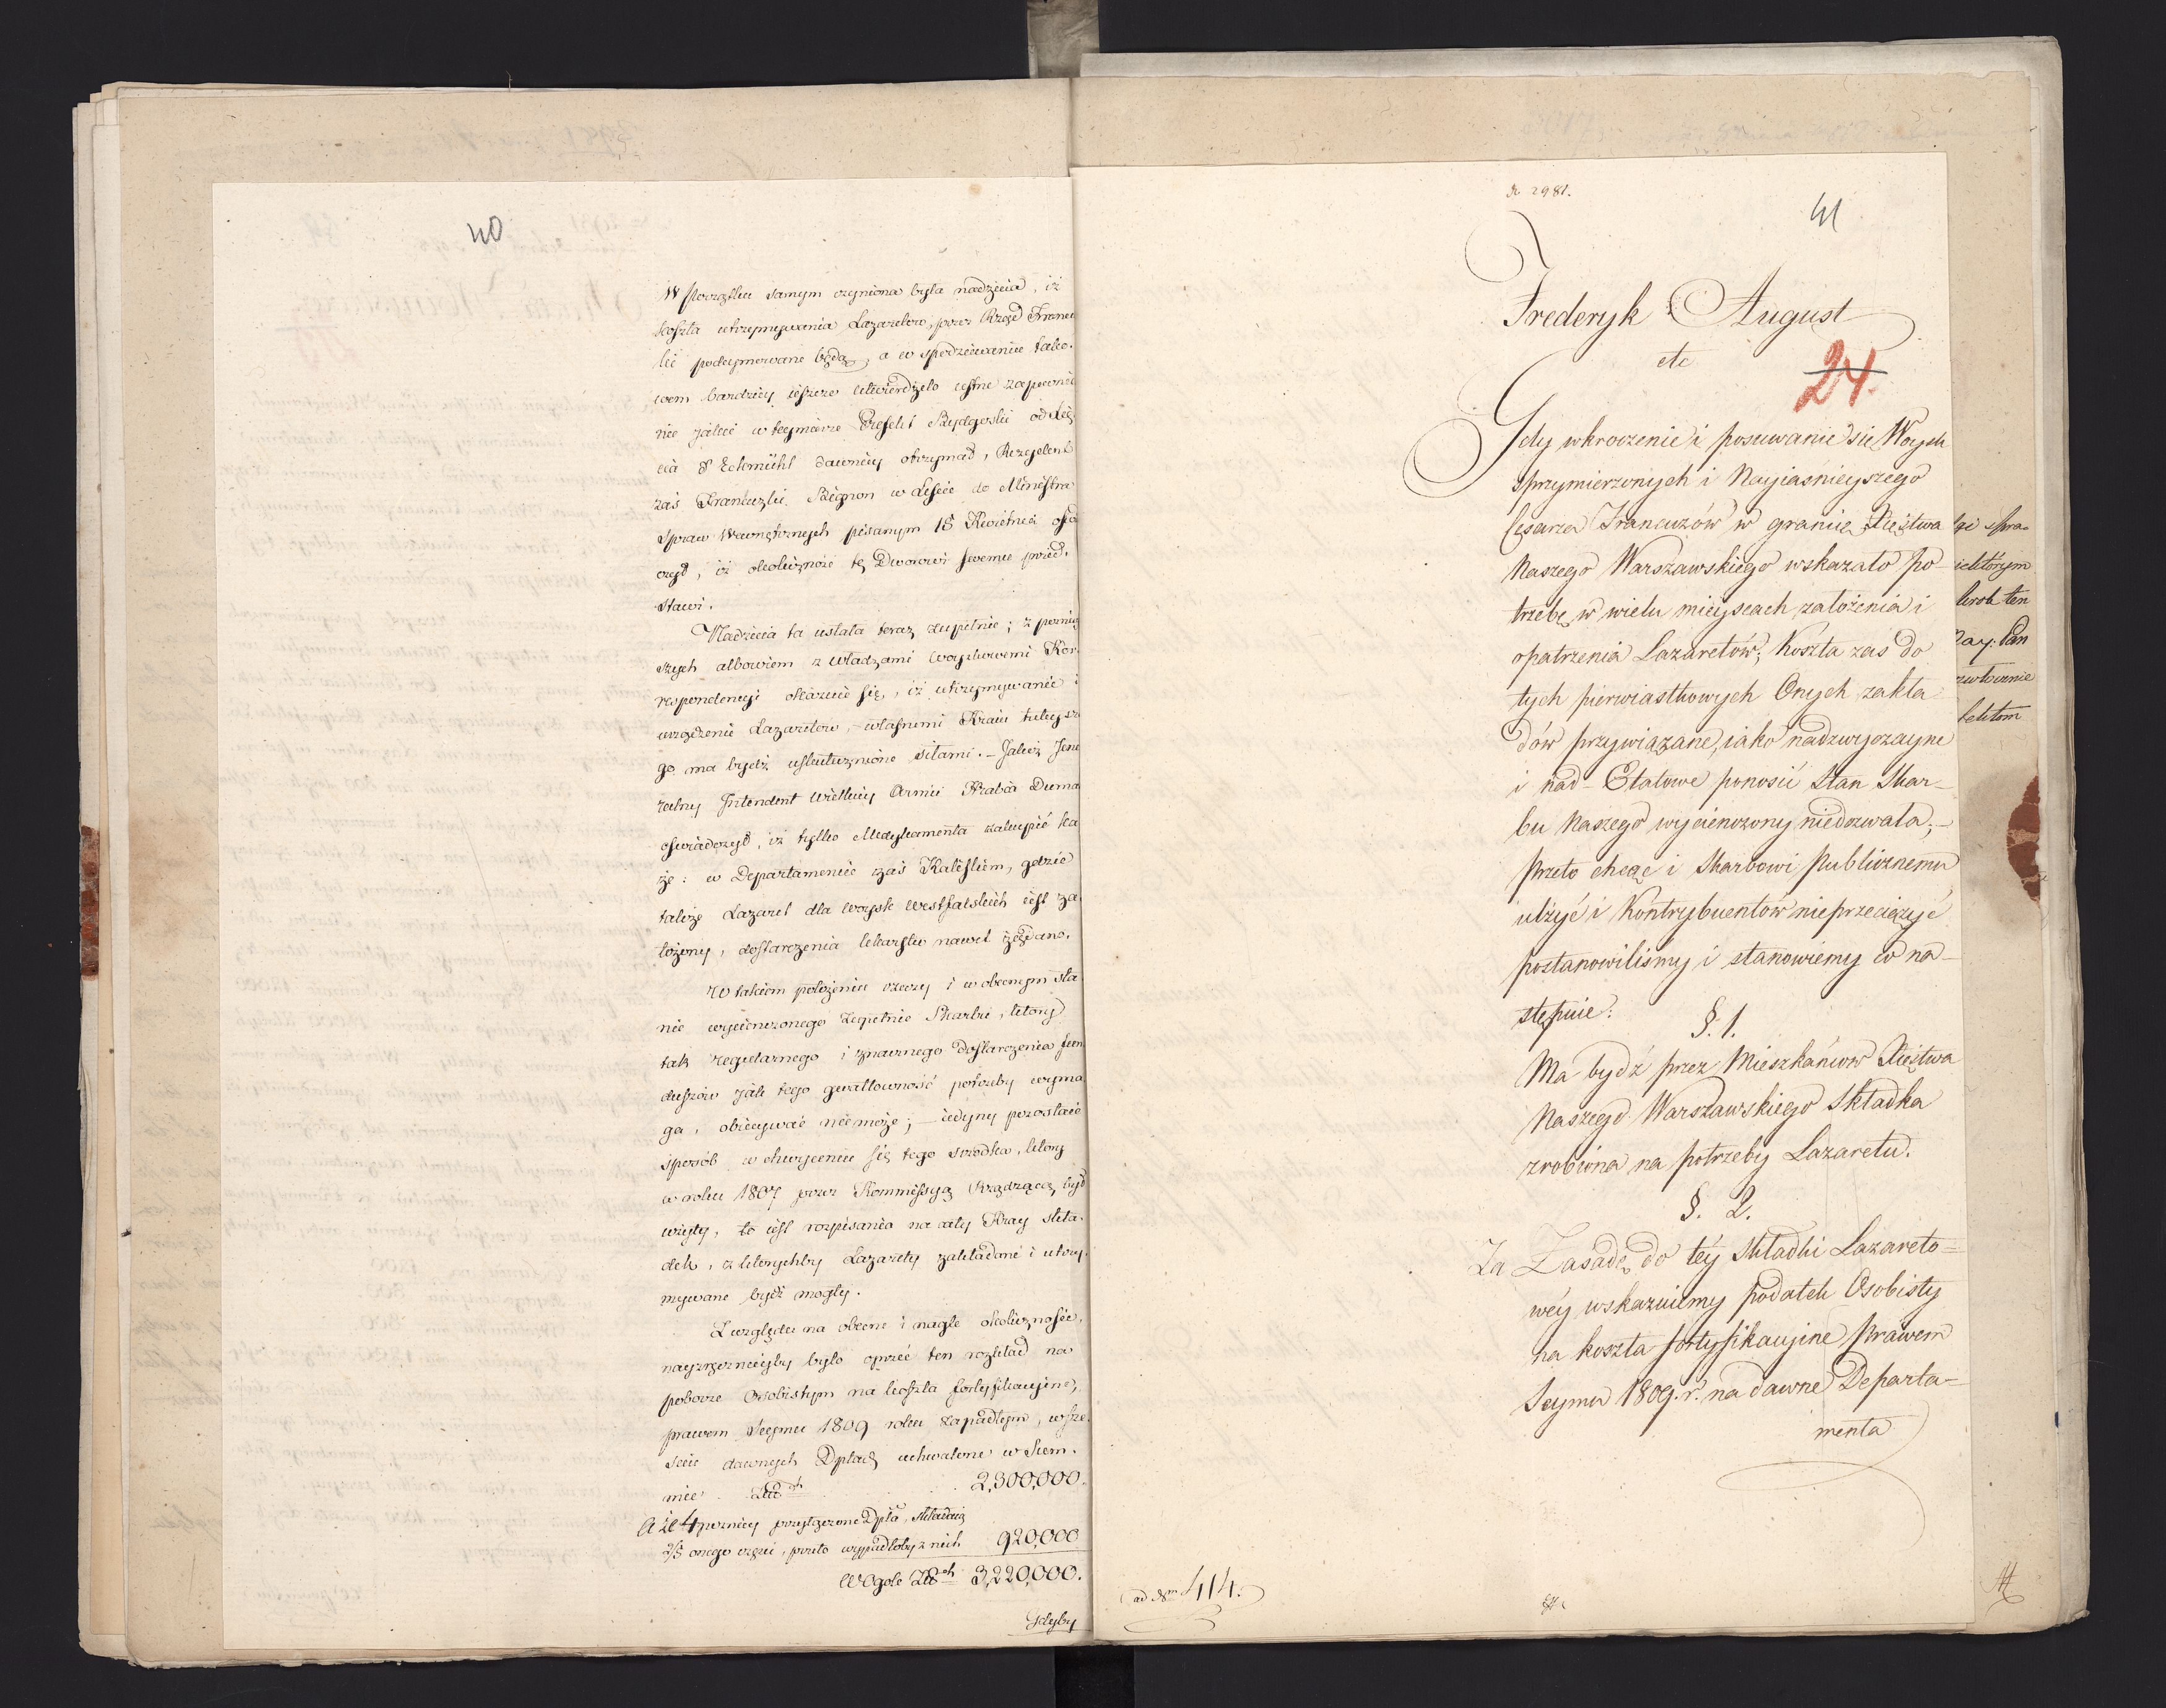 40
W początku samym czyniona była nadzieia, iż
koszta utrzymywania Lazaretow, przez Rząd Francu
ski podeymowane będą, a w spodziewaniu tako-
wem bardziey ieszcze utwierdzało ustne zapewnie
nie jakie w teymierze Prefekt Bydgoski od Xię
cia d'Eckmühl dawniey otrzymał, Rezydent
zaś Francuzki Bignon w Liście do Ministra
Spraw Wewnętrznych pisanym 18 Kwietnia ośw
czył, iż okoliczność tę Dworowi swemu przed-
stawi.
Nadzieia ta ustała teraz zupełnie; z poźniey
szych albowiem z Władzami woyskowemi Kor-
respondencyi okazuie się, iż utrzymywanie i
urządzenie Lazaretow, własnemi Kraiu tuteysze
go ma bydź uskutecznione siłami. – Jakoż Jene
ralny Intendent wielkiey Armii Hrabia Dumas
oświadczył, iż tylko Medykamenta zakupić ka
że: w Departamencie zaś Kaliskim, gdzie
także Lazaret dla woysk Westfalskich iest za
łożony, dostarczenia lekarstw nawet żądano.
W takiem położeniu rzeczy i w obecnym sta
nie wycieńczonego zupełnie Skarbu, który
tak regularnego i znacznego dostarczenia fun
duszów jak tego gwałtowność potrzeby wyma
ga, obiecywać nie może; – iedyny pozostaie
sposób w chwyceniu się tego srodka, który
w roku 1807 przez Kommissyą Rządzącą był
użyty, to iest rozpisania na cały Kray skła-
dek, z którychby Lazarety zakładane i utrzy-
mywane bydź mogły.
Z względu na obecne i nagłe okoliczności,
nayzręczniejby było oprzeć ten rozkład na
poborze Osobistym na koszta fortyfikacyine,
prawem Seymu 1809 roku zapadłym, w sze-
ściu dawnych Dptach uchwalone w Sum-
mie Złłch 2,300,000.
A że 4 poźniey przyłączone Dpta, składaią
2/5 onego części, przeto wypadłoby z nich 920,000
W Ogole Złłch 3,220,000.
Gdyby
N 2981.
41
Frederyk August
etc
24.
Gdy wkroczenie i posuwanie się Woysk
sprzymierzonych i Nayiaśnieyszego
Cesarza Francuzów w granice Xięztwa
Naszego Warszawskiego wskazało po-
trzebę w wielu mieyscach założenia i
opatrzenia Lazaretów; Koszta zas do
tych pierwiastkowych Onych zakła
dów przywiązane, iako nadzwyczayne
i nad-Etatowe ponosić Stan Skar-
bu Naszego wycienczony niedozwala; –
przeto chcąc i Skarbowi Publicznemu
ulżyć i Kontrybuentów nieprzeciążyć
postanowiliśmy i stanowiemy co na-
stępuie:
§. 1.
Ma bydź przez Mieszkańców Xięztwa
Naszego Warszawskiego Składka
zrobiona na potrzeby Lazaretu.
§. 2.
Za Zasadę do tey Składki Lazareto=
wéy wskazuiemy podatek Osobisty
na koszta fortyfikacyine Prawem
Seymu 1809. r. na dawne Departa=
menta
ad Nrm 414.
spra=
któtym
krok ten
Nay: Pan